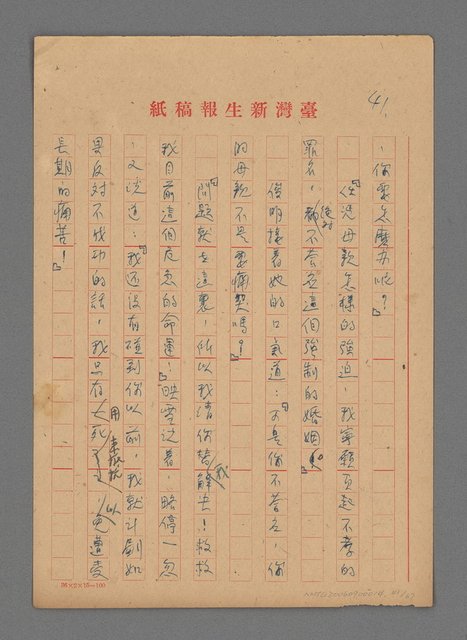 臺灣新生報稿紙
41.
，你要怎麼办呢？』
『任憑母親怎樣的強迫，我寧願負起不孝的
罪名，絕対都不荅应這個強制的婚姻。』
俊明接着她的口氣道：『可是你不荅应，你
的母親不是要痛哭嗎！』
『問題就在這裏，所以我請你替我解决！救救
我目前這個危急的命運！』映雪说着，略停一忽
，又说道：『我还没有碰到你以前，我就计劃如
果反对不成功的話，我只有用死來抵抗以免遭受
長期的痛苦！』
25×2×12=600
NMTL20060900014 41/67